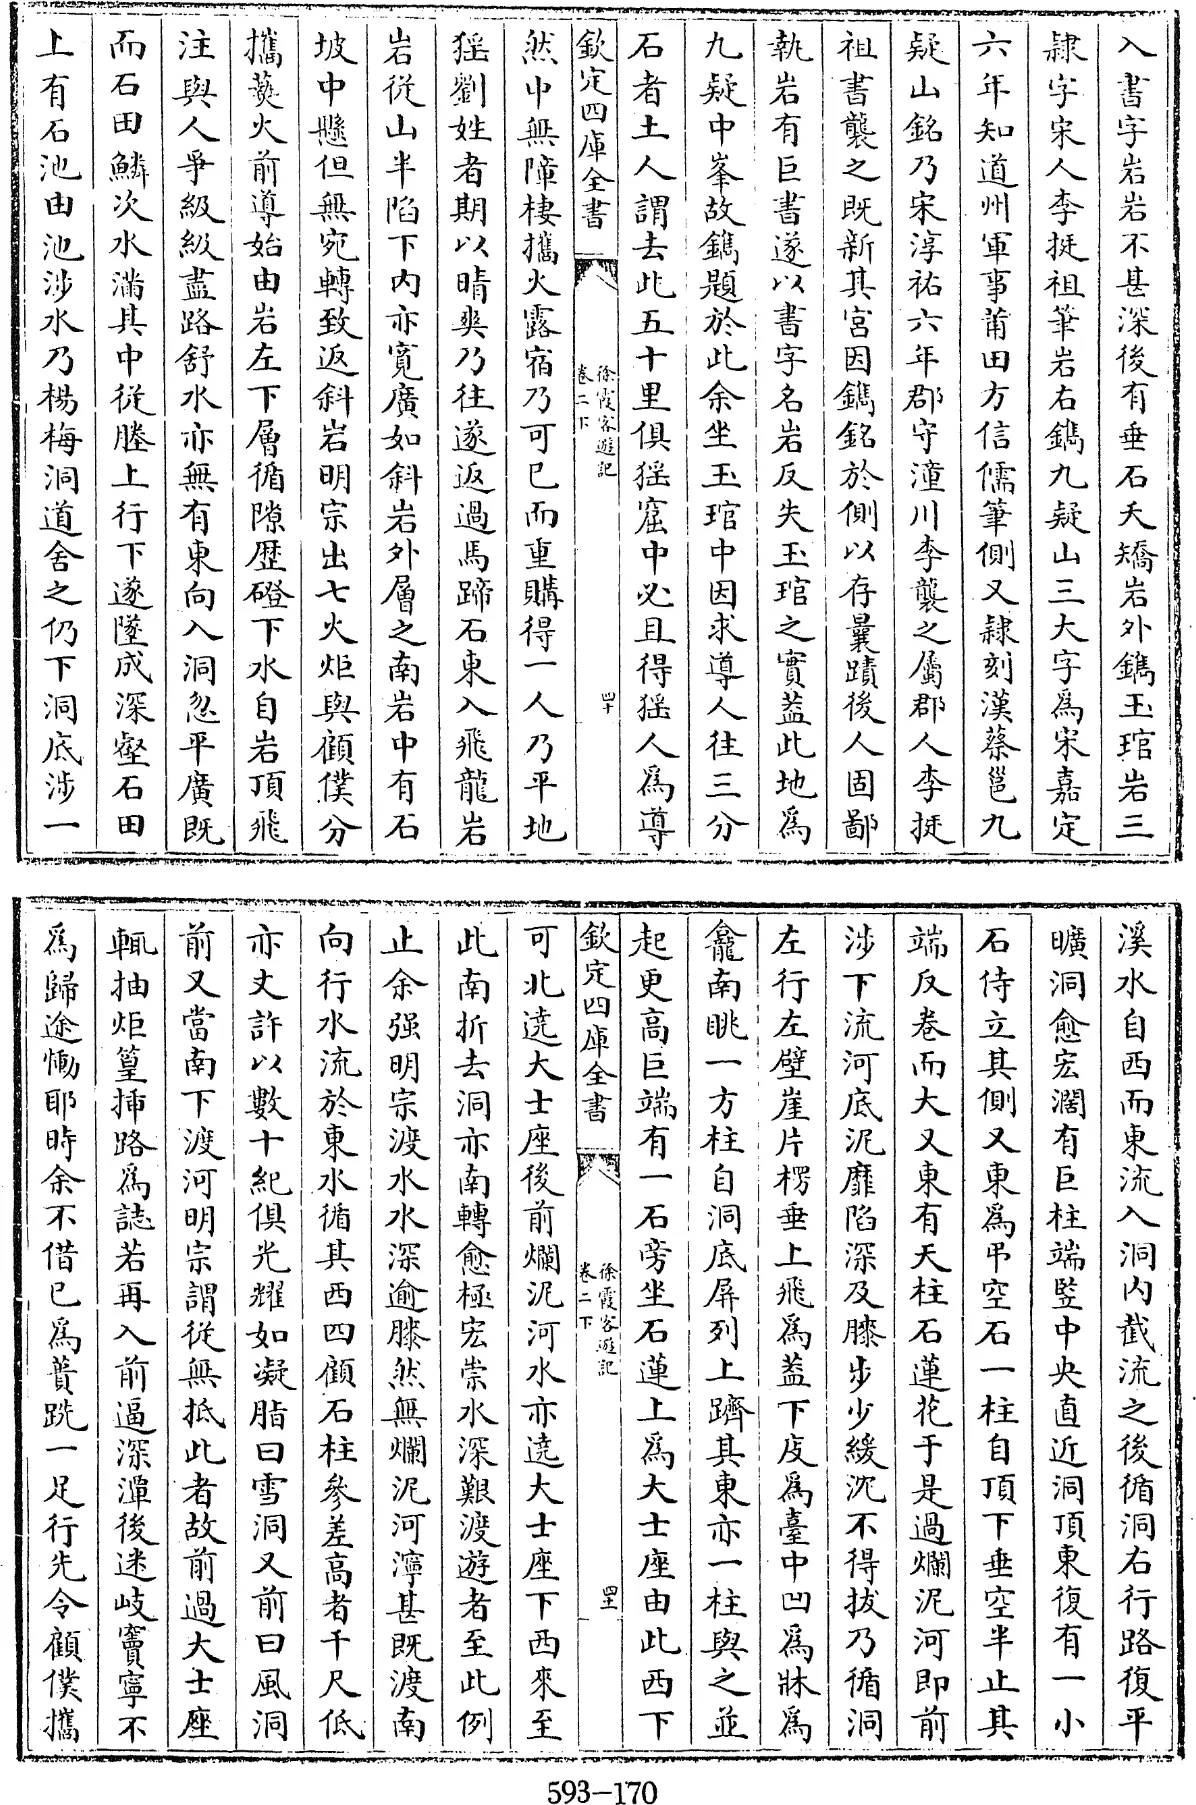 入書字岩岩不甚深後有垂石夭矯岩外鐫玉琯岩三
隷字宋人李挺祖筆岩右鐫九疑山三大字爲宋嘉定
六年知道州軍事莆田方信儒筆側又隷刻漢蔡邕九
疑山銘乃宋淳祐六年郡守潼川李襲之屬郡人李挺
祖書襲之既新其宮因鐫銘於側以存曩蹟後人固鄙
執岩有巨書遂以書字名岩反失玉琯之實葢此地爲
九疑中峯故鐫題於此余坐玉琯中因求導人往三分
石者土人謂去此五十里俱猺窟中必且得猺人爲導
欽定四庫全書
徐霞客遊記
卷二下
四十
然中無障棲攜火露宿乃可已而重購得一人乃平地
猺劉姓者期以晴爽乃往遂返過馬蹄石東入飛龍岩
岩從山半陷下内亦寛廣如斜岩外層之南岩中有石
坡中懸但無宛轉致返斜岩明宗出七火炬與顧僕分
攜爇火前導始由岩左下層循隙歴磴下水自岩頂飛
注與人爭級級盡路舒水亦無有東向入洞忽平廣既
而石田鱗次水滿其中從塍上行下遂墜成深壑石田
上有石池由池涉水乃楊梅洞道舍之仍下洞底涉一
溪水自西而東流入洞内截流之後循洞右行路復平
曠洞愈宏濶有巨柱端竪中央直近洞頂東復有一小
石侍立其側又東爲弔空石一柱自頂下垂空半止其
端反卷而大又東有天柱石蓮花于是過爛泥河即前
涉下流河底泥靡陷深及膝步少緩沈不得拔乃循洞
左行左壁崖片楞垂上飛爲蓋下庋爲臺中凹爲牀爲
龕南眺一方柱自洞底屏列上躋其東亦一柱與之並
起更高巨端有一石旁坐石蓮上爲大士座由此西下
欽定四庫全書
徐霞客遊記
卷二下
四十一
可北遶大士座後前爛泥河水亦遶大士座下西來至
此南折去洞亦南轉愈極宏崇水深艱渡遊者至此例
止余强明宗渡水水深逾膝然無爛泥河濘甚既渡南
向行水流於東水循其西四顧石柱參差高者千尺低
亦丈許以數十紀俱光耀如凝脂曰雪洞又前曰風洞
前又當南下渡河明宗謂從無抵此者故前過大士座
輒抽炬篁揷路爲誌若再入前逼深潭後迷岐竇寧不
爲歸途慟耶時余不借已爲蕢跣一足行先令顧僕攜
593-170